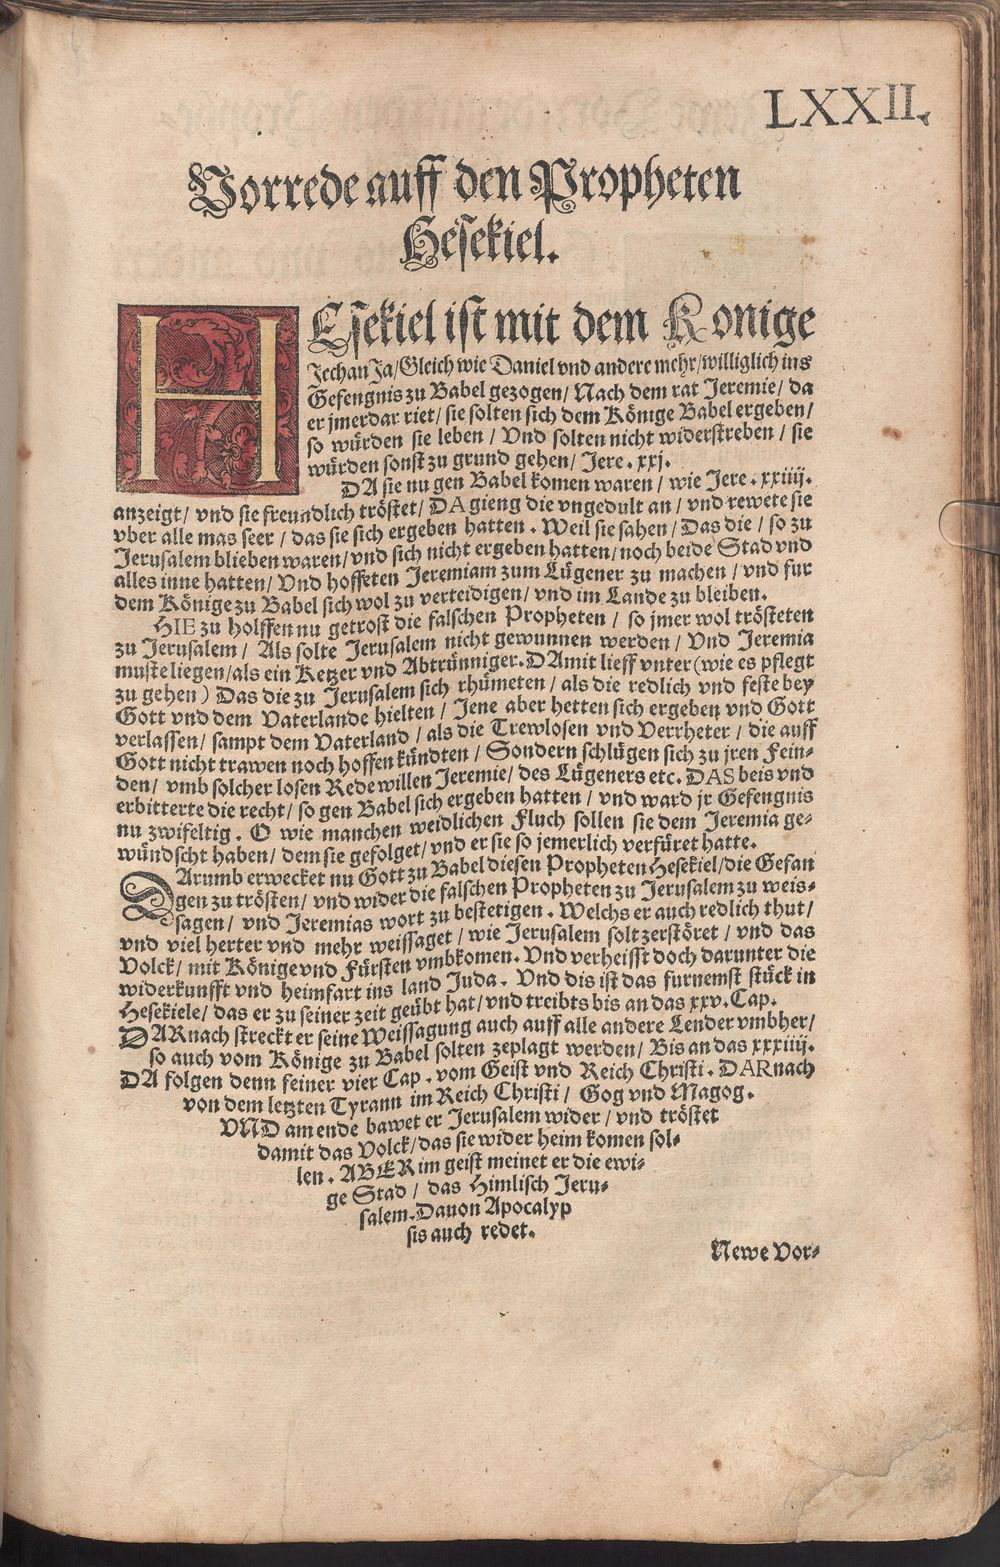 LXXII.
Vorrede auff den Propheten
Hesekiel.
HEsekiel ist mit dem Konige
Jechan Ja/Gleich wie Daniel vnd andere mehr/williglich ins
Gefengnis zu Babel gezogen/Nach dem rat Jeremie/da
er jmerdar riet/sie solten sich dem Könige Babel ergeben/
so würden sie leben/Vnd solten nicht widerstreben/sie
würden sonst zu grund gehen/Jere. xxj.
DA sie nu gen Babel komen waren/wie Jere. xxiiij.
anzeigt/vnd sie freundlich tröstet/DA gieng die vngedult an/vnd rewete sie
vber alle mas seer/das sie sich ergeben hatten. Weil sie sahen/Das die/so zu
Jerusalem blieben waren/vnd sich nicht ergeben hatten/noch beide Stad vnd
alles inne hatten/Vnd hoffeten Jeremiam zum Lügener zu machen/vnd fur
dem Könige zu Babel sich wol zu verteidigen/vnd im Lande zu bleiben.
HIE zu holffen nu getrost die falschen Propheten/so jmer wol trösteten
zu Jerusalem/Als solte Jerusalem nicht gewunnen werden/Vnd Jeremia
muste liegen/als ein Ketzer vnd Abtrünniger. DAmit lieff vnter (wie es pflegt
zu gehen) Das die zu Jerusalem sich rhümeten/als die redlich vnd feste bey
Gott vnd dem Vaterlande hielten/Jene aber hetten sich ergeben vnd Gott
verlassen/sampt dem Vaterland/als die Trewlosen vnd Verrheter/die auff
Gott nicht trawen noch hoffen kündten/Sondern schlügen sich zu jren Fein-
den/vmb solcher losen Rede willen Jeremie/des Lügeners etc. DAS beis vnd
erbitterte die recht/so gen Babel sich ergeben hatten/vnd ward jr Gefengnis
nu zwifeltig. O wie manchen weidlichen Fluch sollen sie dem Jeremia ge-
wündscht haben/dem sie gefolget/vnd er sie so jemerlich verfüret hatte.
DArumb erwecket nu Gott zu Babel diesen Propheten Hesekiel/die Gefan
gen zu trösten/vnd wider die falschen Propheten zu Jerusalem zu weis-
sagen/vnd Jeremias wort zu bestetigen. Welchs er auch redlich thut/
vnd viel herter vnd mehr weissaget/wie Jerusalem solt zerstöret/vnd das
Volck/mit Könige vnd Fürsten vmbkomen. Vnd verheisst doch darunter die
widerkunfft vnd heimfart ins land Juda. Vnd dis ist das furnemst stück in
Hesekiele/das er zu seiner zeit geübt hat/vnd treibts bis an das xxv. Cap.
DARnach streckt er seine Weissagung auch auff alle andere Lender vmbher/
so auch vom Könige zu Babel solten zeplagt werden/Bis an das xxxiiij.
DA folgen denn feiner vier Cap. vom Geist vnd Reich Christi. DARnach
von dem letzten Tyrann im Reich Christi/Gog vnd Magog.
VND am ende bawet er Jerusalem wider/vnd tröstet
damit das Volck/das sie wider heim komen sol-
len. ABER im geist meinet er die ewi-
ge Stad/das Himlisch Jeru-
salem. Dauon Apocalyp
sis auch redet.
Newe Vor-